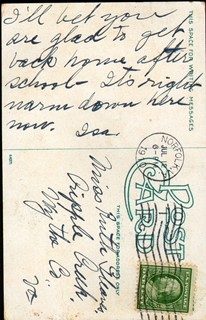 I'll bet you
are glad to get
back home after
school - It's right
warm down here
now. Ina
THIS SPACE FOR WRITING MESSAGES
POST
CARD
THIS SPACE FOR ADDRESS ONLY
NORFOLK
JUL
Miss
Cripple Creek
Wythe Co.
Va